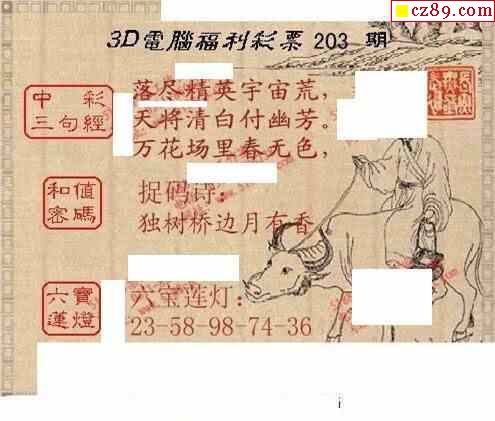 cz89.com
3D電腦福利彩票 203 期
中彩
三句經
落尽精英宇宙荒，
天将清白付幽芳。
万花场里春无色，
和值
密碼
捉码诗：
独树桥边月有香
六寶
蓮燈
六宝莲灯：
23-58-98-74-36